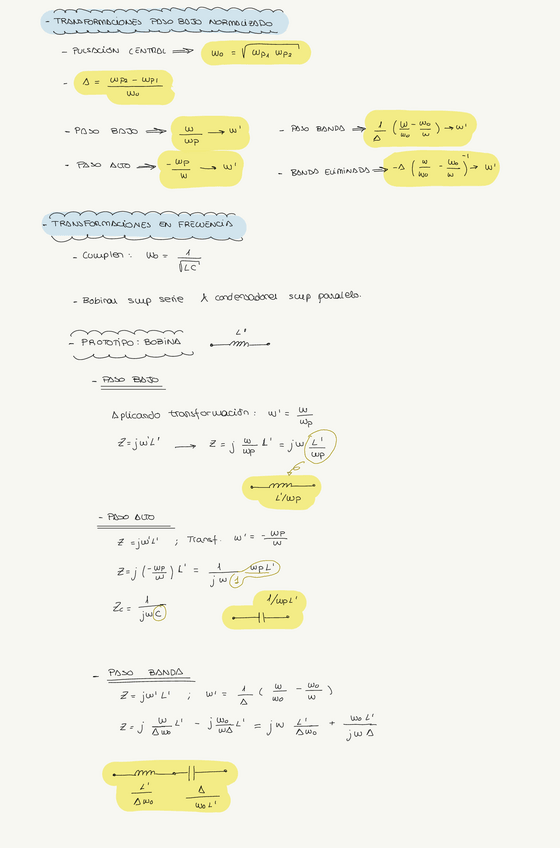 - TRANSFORMACIONES PASO BAJO NORMALIZADO
- PULSACIÓN CENTRAL ⟹ ω₀ = √(ωp1 ωp2)
- Δ = (ωp2 - ωp1) / ω₀
- PASO BAJO ⟹ ω/ωp → ω'
- PASO BANDA ⟹ 1/Δ (ω/ω₀ - ω₀/ω) → ω'
- PASO ALTO ⟹ -ωp/ω → ω'
- BANDA ELIMINADA ⟹ -Δ (ω/ω₀ - ω₀/ω)⁻¹ → ω'
- TRANSFORMACIONES EN FRECUENCIA
- Cumplen: ω₀ = 1/√LC
- Bobinas siemp serie & condensadores siemp paralelo.
- PROTOTIPO: BOBINA L'
- PASO BAJO
Aplicando transformación: ω' = ω/ωp
Z = jω'L' → Z = j ω/ωp L' = jω L'/ωp
L'/ωp
- PASO ALTO
Z = jω'L' ; Transf. ω' = -ωp/ω
Z = j (-ωp/ω) L' = 1/jω ωpL'/1
Zc = 1/jωC
1/ωpL'
- PASO BANDA
Z = jω'L' ; ω' = 1/Δ (ω/ω₀ - ω₀/ω)
Z = j ω/Δω₀ L' - j ω₀/ωΔ L' = jω L'/Δω₀ + ω₀L'/jωΔ
L'/Δω₀ Δ/ω₀L'